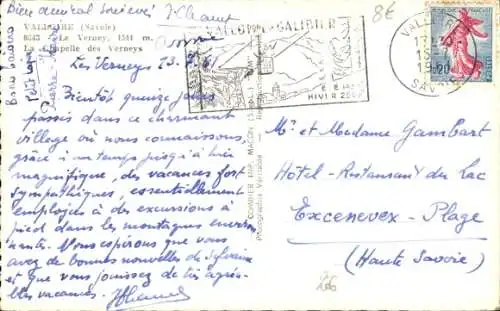 Bien amical souvenir
VALLOIRE (Savoie)
8643 - Le Verney, 1541 m.
La Chapelle des Verneys
Les Verneys 23.8.61
Bientôt quinze jours
passés dans ce charmant
village où nous connaissons,
grâce à un temps jusqu'à hier
magnifique, des vacances fort
sympathiques, essentiellement
employées à des excursions à
pied dans les montagnes environ
nantes. Nous espérons que vous
avez de bonnes nouvelles de Sylvaine
et que vous jouissez de très agréa-
bles vacances.
Bons baisers
Pierre
GALIBIER
HIVER
VALLOIRE
SAVOIE
8€
COMBIER IMP. MACON
Photographie Véritable
Mr et Madame Gambart
Hôtel-Restaurant du Lac
Excenevex-Plage
(Haute Savoie)